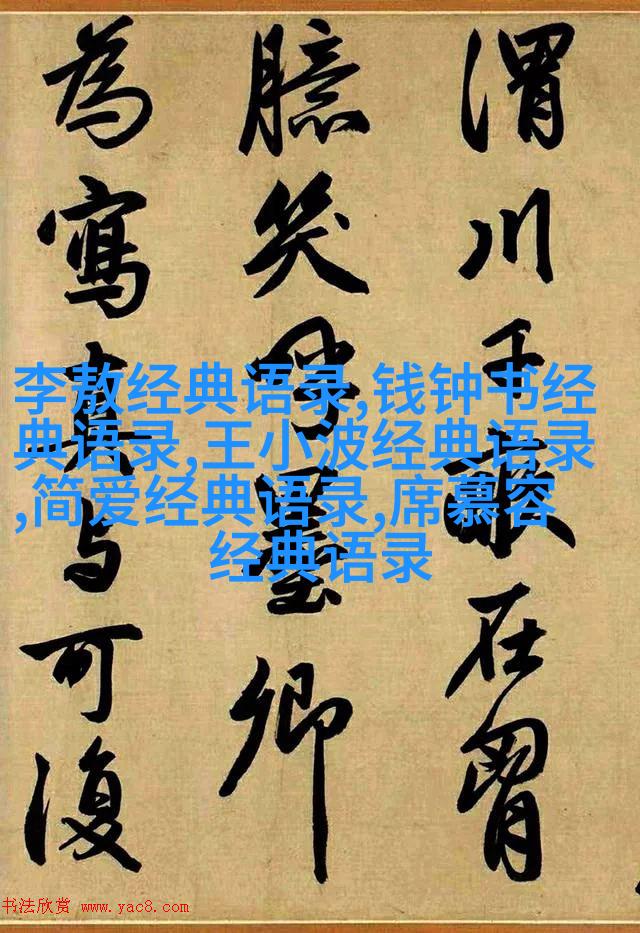 渭川千畝在胷
臆笑呼墨卿
為寫真与可復
李敖经典语录,钱钟书经
典语录,王小波经典语录
,简爱经典语录,席慕容
经典语录
书法欣赏 www.yac8.com